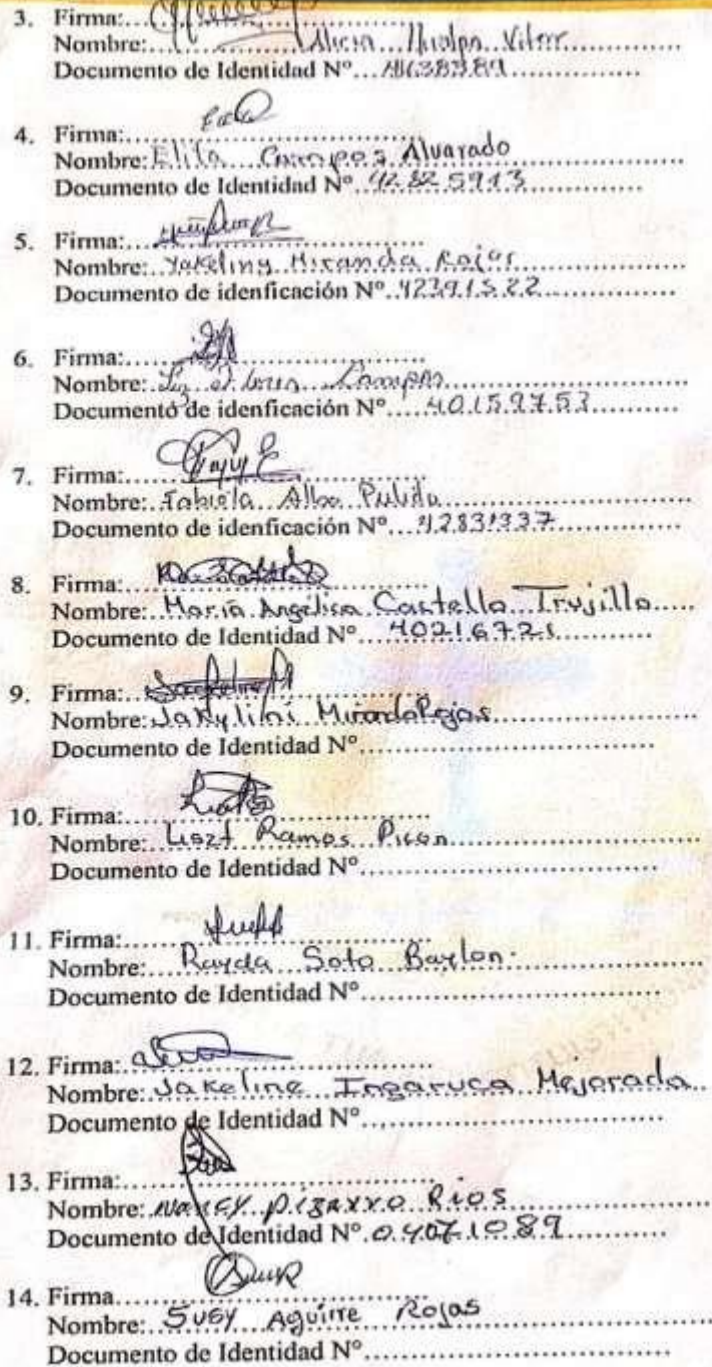 3. Firma:
Nombre: Alicia
Documento de Identidad Nº
4. Firma:
Nombre: Elita Campos Alvarado
Documento de Identidad Nº 42825913
5. Firma:
Nombre: Yakeliny Miranda Rojas
Documento de idenficación Nº 42391522
6. Firma:
Nombre: Campos
Documento de idenficación Nº 40159753
7. Firma:
Nombre: Fabiola Alba Pulido
Documento de idenficación Nº 42831337
8. Firma:
Nombre: María Angelica Castello Trujillo
Documento de Identidad Nº 40216721
9. Firma:
Nombre: Jakylini Miranda Rojas
Documento de Identidad Nº
10. Firma:
Nombre: Liszt Ramos Picon
Documento de Identidad Nº
11. Firma:
Nombre: Rayda Soto Baylon
Documento de Identidad Nº
12. Firma:
Nombre: Jakeline Ingaruca Mejorada
Documento de Identidad Nº
13. Firma:
Nombre: Nancy Pizarro Rios
Documento de Identidad Nº 04071089
14. Firma
Nombre: Susy Aguirre Rojas
Documento de Identidad Nº